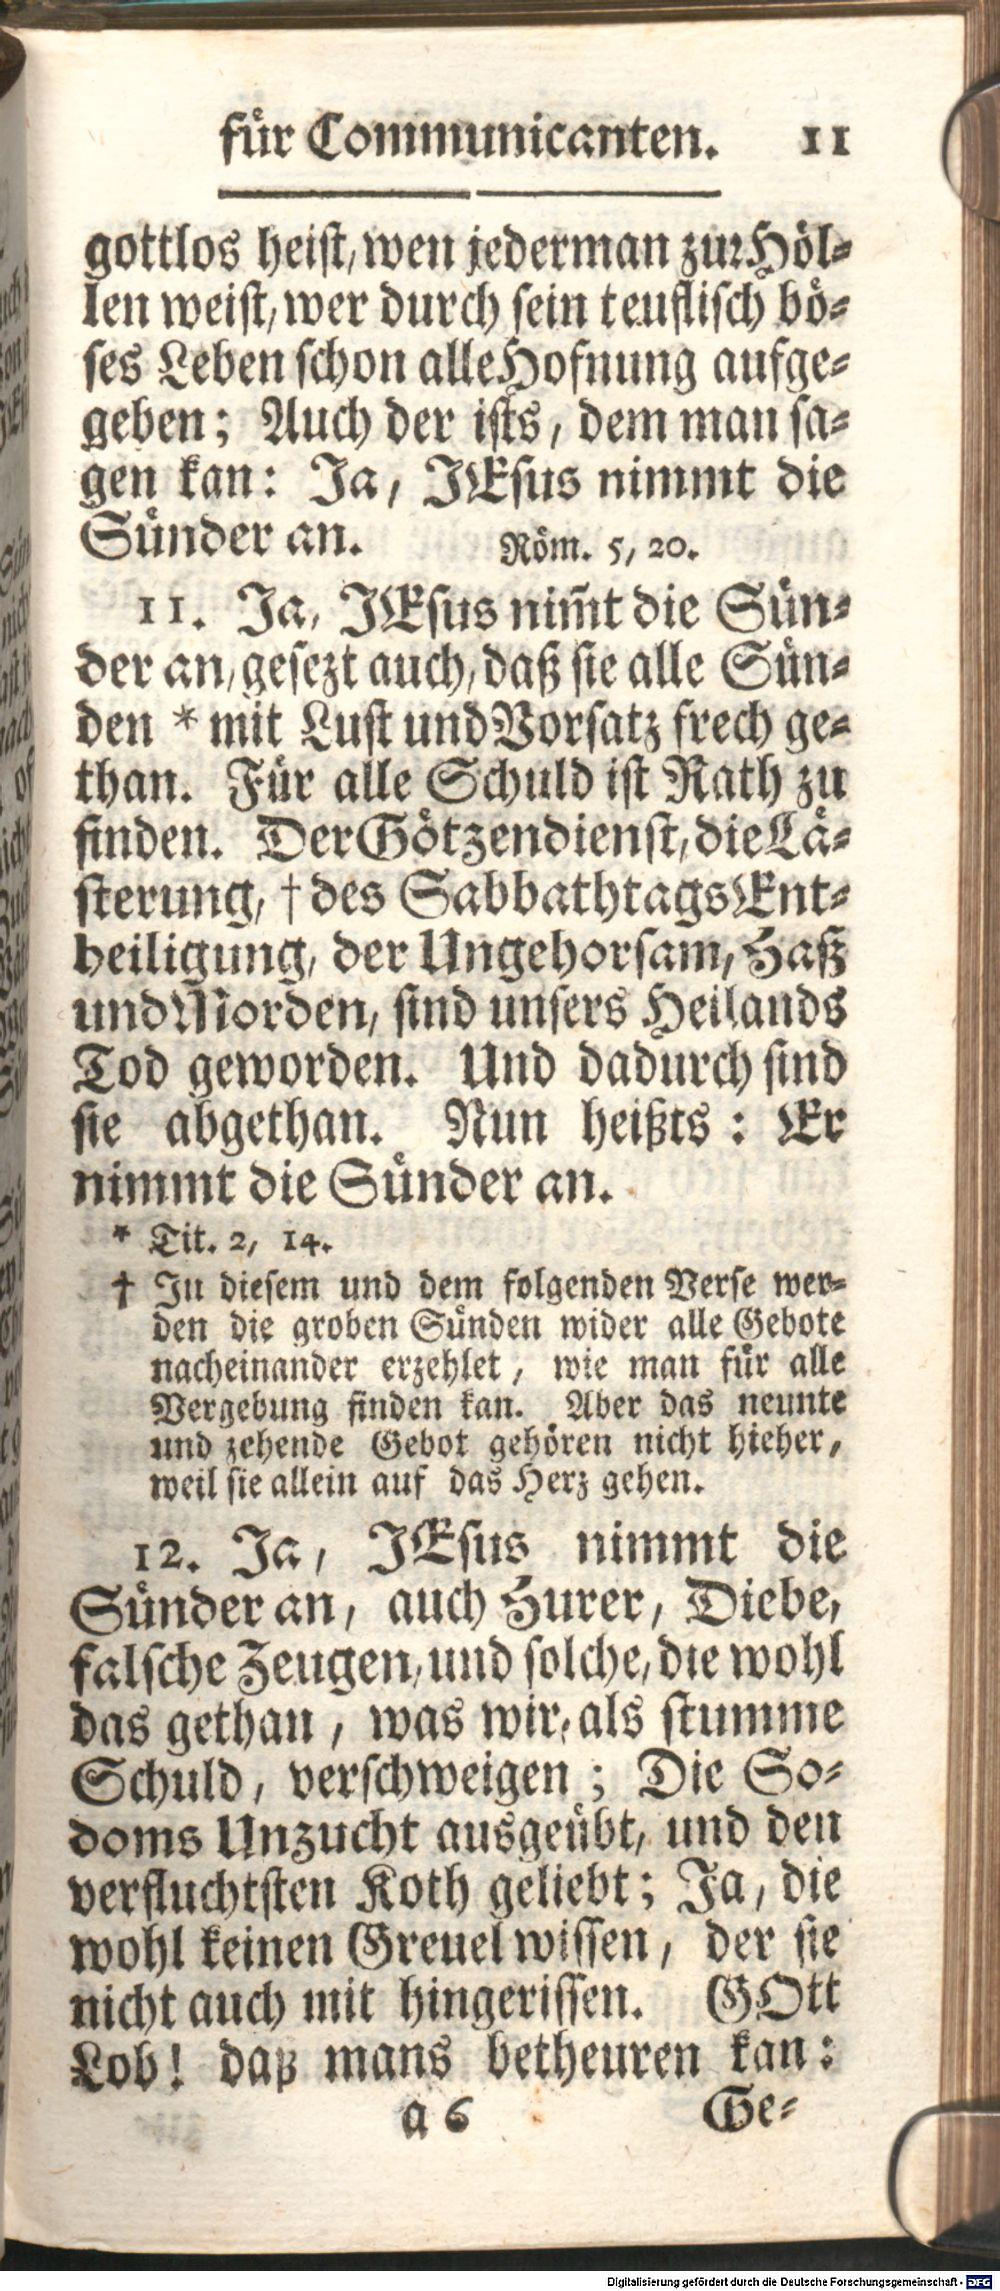 für Communicanten. 11
gottlos heist, wen jederman zur Höl-
len weist, wer durch sein teuflisch bö-
ses Leben schon alle Hofnung aufge-
geben; Auch der ists, dem man sa-
gen kan: Ja, JEsus nimmt die
Sünder an. Röm. 5, 20.
11. Ja, JEsus nim̃t die Sün-
der an, gesezt auch, daß sie alle Sün-
den * mit Lust und Vorsatz frech ge-
than. Für alle Schuld ist Rath zu
finden. Der Götzendienst, die Lä-
sterung, † des Sabbathtags Ent-
heiligung, der Ungehorsam, Haß
und Morden, sind unsers Heilands
Tod geworden. Und dadurch sind
sie abgethan. Nun heißts: Er
nimmt die Sünder an.
* Tit. 2, 14.
† In diesem und dem folgenden Verse wer-
den die groben Sünden wider alle Gebote
nacheinander erzehlet, wie man für alle
Vergebung finden kan. Aber das neunte
und zehende Gebot gehören nicht hieher,
weil sie allein auf das Herz gehen.
12. Ja, JEsus nimmt die
Sünder an, auch Hurer, Diebe,
falsche Zeugen, und solche, die wohl
das gethan, was wir, als stumme
Schuld, verschweigen; Die So-
doms Unzucht ausgeübt, und den
verfluchtsten Koth geliebt; Ja, die
wohl keinen Greuel wissen, der sie
nicht auch mit hingerissen. GOtt
Lob! daß mans betheuren kan:
a 6 Ge-
Digitalisierung gefördert durch die Deutsche Forschungsgemeinschaft - DFG